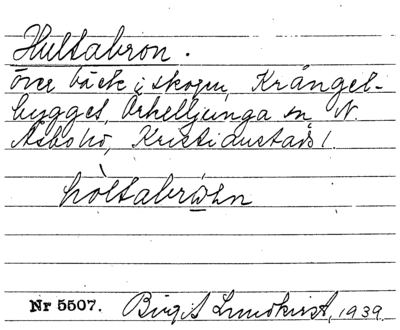 Hultabron.
över bäck i skogen, Krångel-
bygget, Örkelljunga sn N.
Åsbo hd, Kristianstads l.
hòltabrωhn
Nr 5507. Birgit Lundkvist, 1939